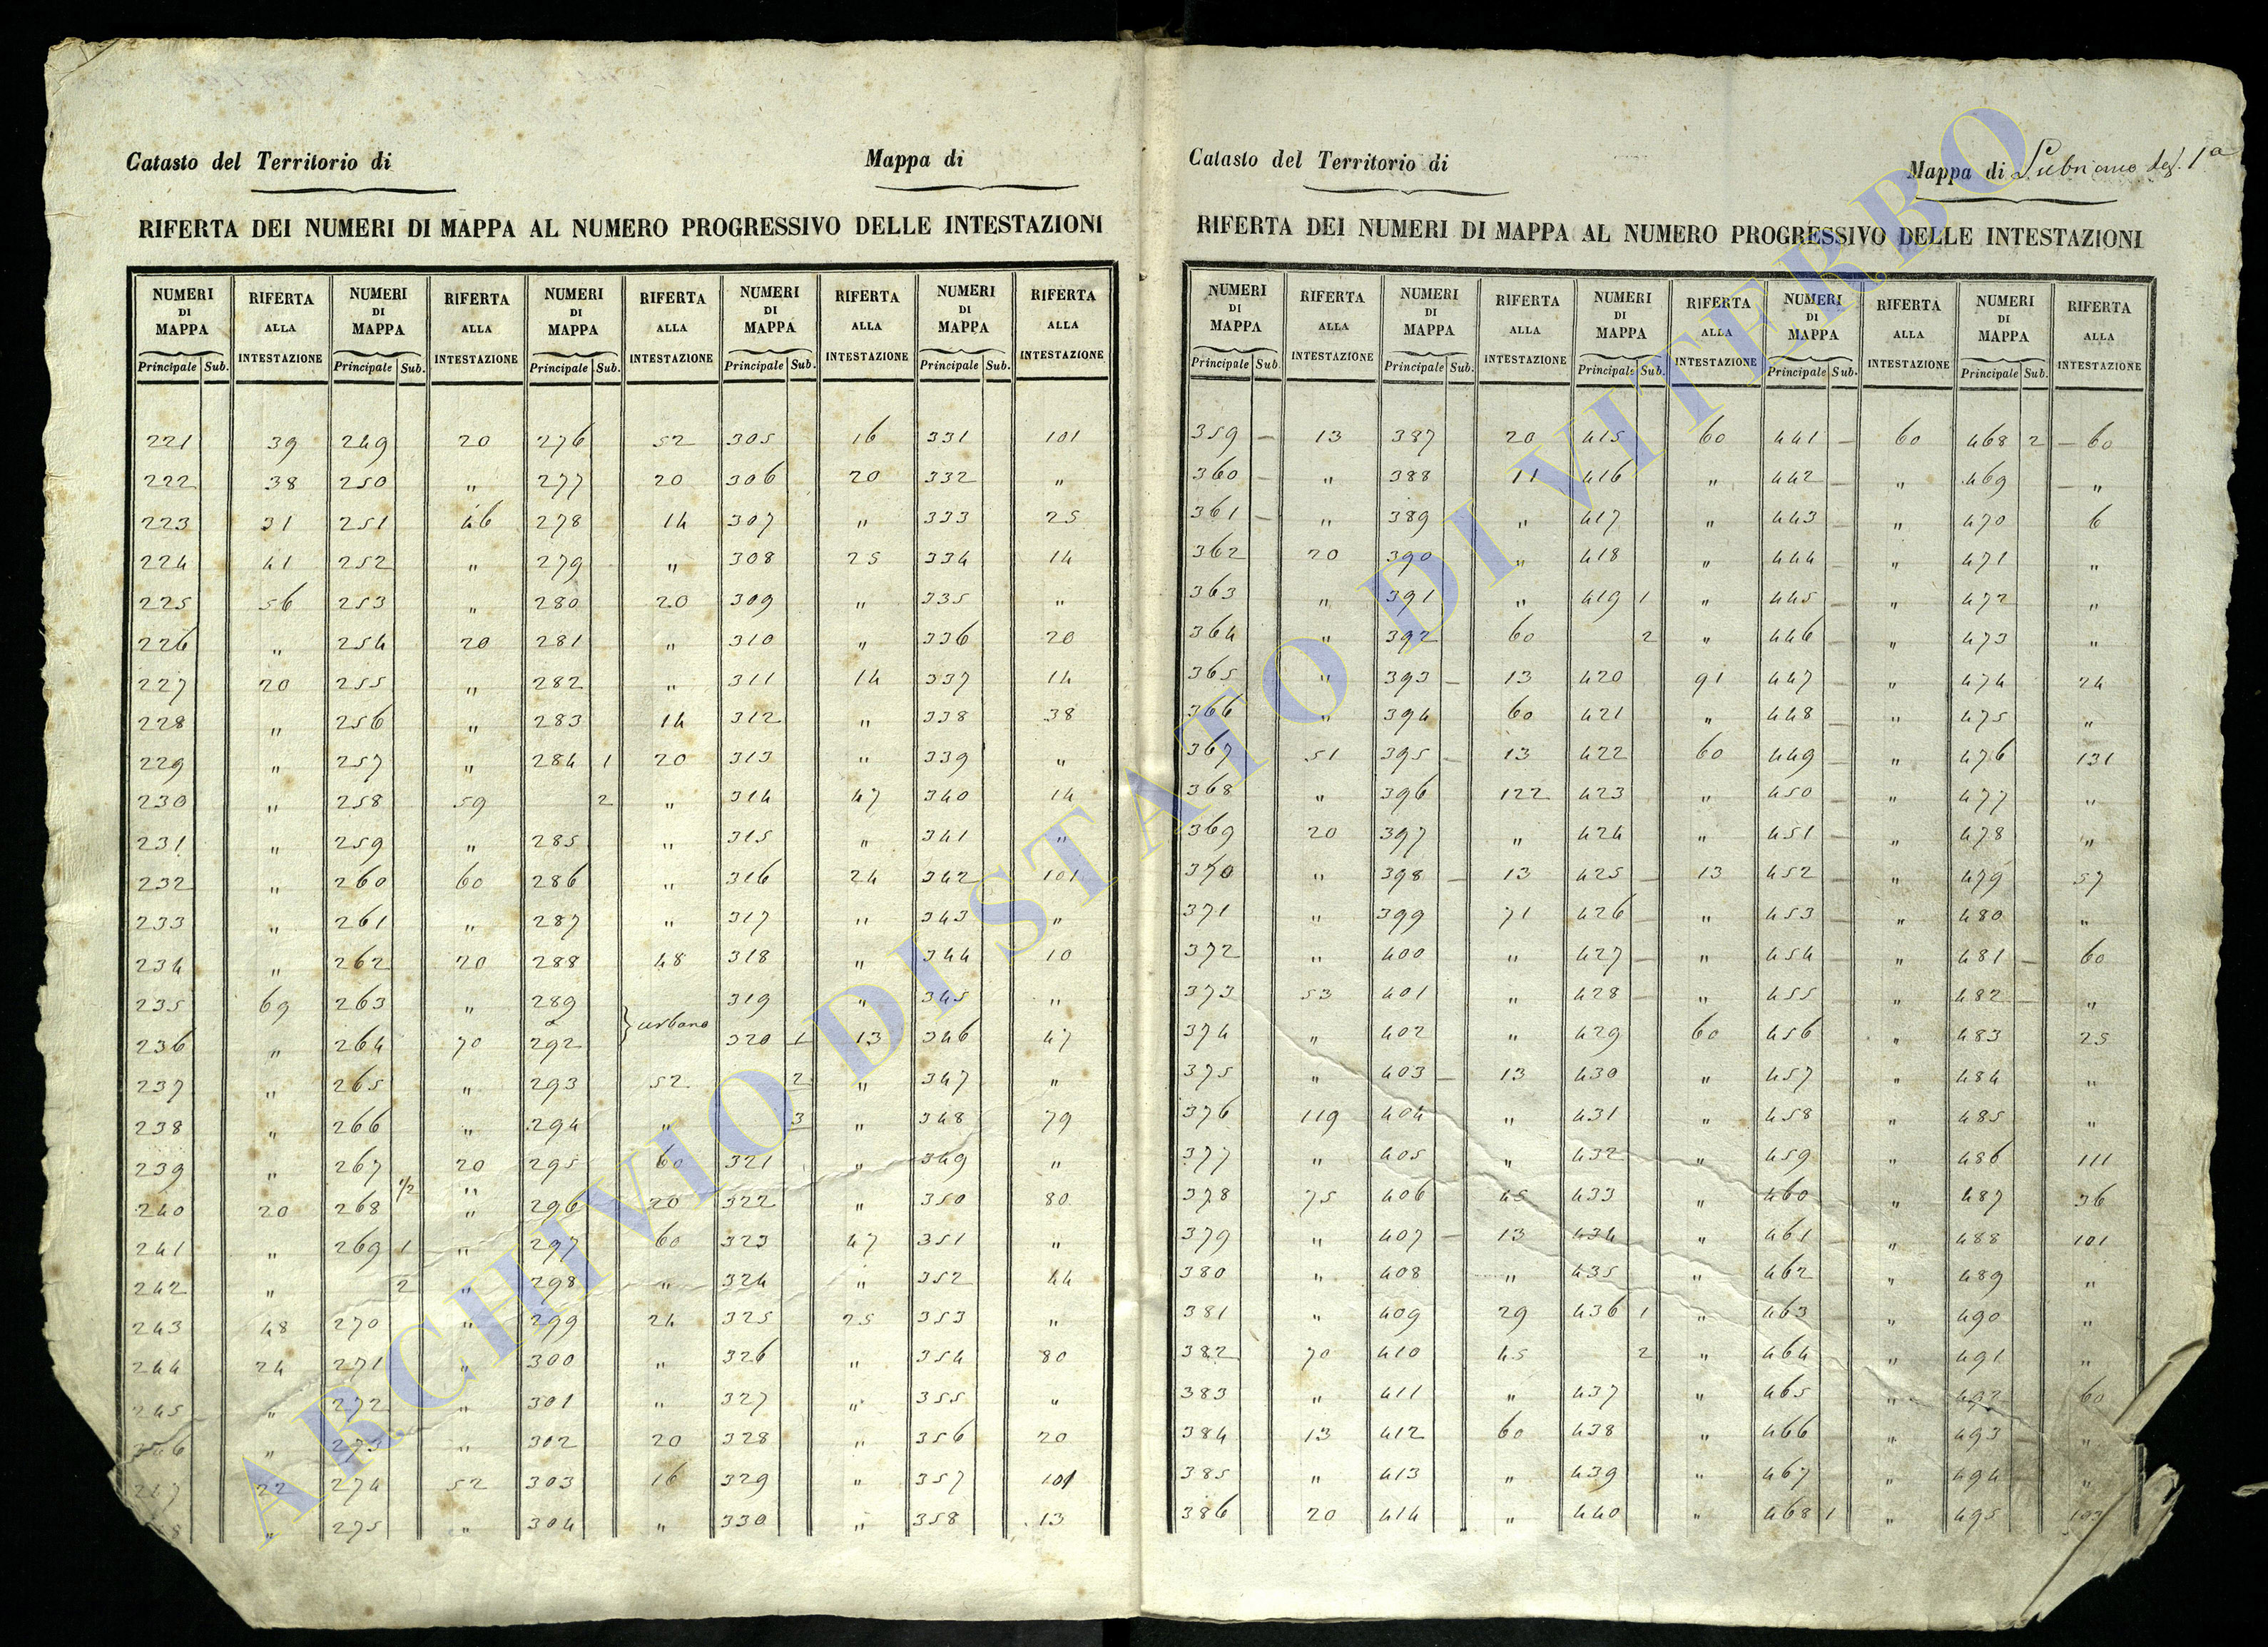 Catasto del Territorio di Mappa di
RIFERTA DEI NUMERI DI MAPPA AL NUMERO PROGRESSIVO DELLE INTESTAZIONI
NUMERI RIFERTA NUMERI RIFERTA NUMERI RIFERTA NUMERI RIFERTA NUMERI RIFERTA
DI ALLA DI ALLA DI ALLA DI ALLA DI ALLA
MAPPA INTESTAZIONE MAPPA INTESTAZIONE MAPPA INTESTAZIONE MAPPA INTESTAZIONE MAPPA INTESTAZIONE
Principale Sub. Principale Sub. Principale Sub. Principale Sub. Principale Sub.
221 39 249 20 276 52 305 16 331 101
222 38 250 " 277 20 306 20 332 "
223 31 251 46 278 14 307 " 333 25
224 41 252 " 279 " 308 25 334 14
225 56 253 " 280 20 309 " 335 "
226 " 254 20 281 " 310 " 336 20
227 20 255 " 282 " 311 14 337 14
228 " 256 " 283 14 312 " 338 38
229 " 257 " 284 1 20 313 " 339 "
230 " 258 59 2 " 314 47 340 14
231 " 259 " 285 " 315 " 341 "
232 " 260 60 286 " 316 24 342 101
233 " 261 " 287 " 317 " 343 "
234 " 262 20 288 48 318 " 344 10
235 69 263 " 289 } urbano 319 " 345 "
236 " 264 70 a 292 320 1 13 346 47
237 " 265 " 293 52 2 " 347 "
238 " 266 " 294 " 3 " 348 79
239 " 267 20 295 60 321 " 349 "
1/2 "
240 20 268 " 296 20 322 " 350 80
241 " 269 1 " 297 60 323 47 351 "
242 " 2 " 298 " 324 " 352 44
243 48 270 " 299 24 325 25 353 "
244 24 271 " 300 " 326 " 354 80
245 " 272 " 301 " 327 " 355 "
246 " 273 " 302 20 328 " 356 20
247 22 274 52 303 16 329 " 357 101
" 275 " 304 " 330 " 358 13
Catasto del Territorio di Mappa di Lubriano 1a
RIFERTA DEI NUMERI DI MAPPA AL NUMERO PROGRESSIVO DELLE INTESTAZIONI
NUMERI RIFERTA NUMERI RIFERTA NUMERI RIFERTA NUMERI RIFERTA NUMERI RIFERTA
DI ALLA DI ALLA DI ALLA DI ALLA DI ALLA
MAPPA INTESTAZIONE MAPPA INTESTAZIONE MAPPA INTESTAZIONE MAPPA INTESTAZIONE MAPPA INTESTAZIONE
Principale Sub. Principale Sub. Principale Sub. Principale Sub. Principale Sub.
359 – 13 387 20 415 60 441 – 60 468 2 – 60
360 – " 388 11 416 " 442 – " 469 – "
361 – " 389 " 417 " 443 – " 470 6
362 20 390 " 418 " 444 – " 471 "
363 " 391 " 419 1 " 445 – " 472 "
364 " 392 60 2 " 446 – " 473 "
365 " 393 – 13 420 91 447 – " 474 24
366 " 394 60 421 " 448 – " 475 "
367 51 395 – 13 422 60 449 – " 476 131
368 " 396 122 423 " 450 – " 477 "
369 20 397 " 424 " 451 – " 478 "
370 " 398 – 13 425 – 13 452 – " 479 57
371 " 399 71 426 – " 453 – " 480 "
372 " 400 " 427 – " 454 – " 481 – 60
373 53 401 " 428 – " 455 – " 482 – "
374 " 402 " 429 60 456 – " 483 25
375 " 403 – 13 430 " 457 – " 484 "
376 119 404 " 431 " 458 – " 485 "
377 " 405 " 432 " 459 – " 486 111
378 75 406 45 433 " 460 – " 487 36
379 " 407 – 13 434 " 461 – " 488 101
380 " 408 " 435 " 462 – " 489 "
381 " 409 29 436 1 " 463 – " 490 "
382 70 410 45 2 " 464 – " 491 "
383 " 411 " 437 " 465 – " 492 60
384 13 412 60 438 " 466 " 493 "
385 " 413 " 439 " 467 " 494 "
386 20 414 " 440 " 468 1 " 495
ARCHIVIO DI STATO DI VITERBO